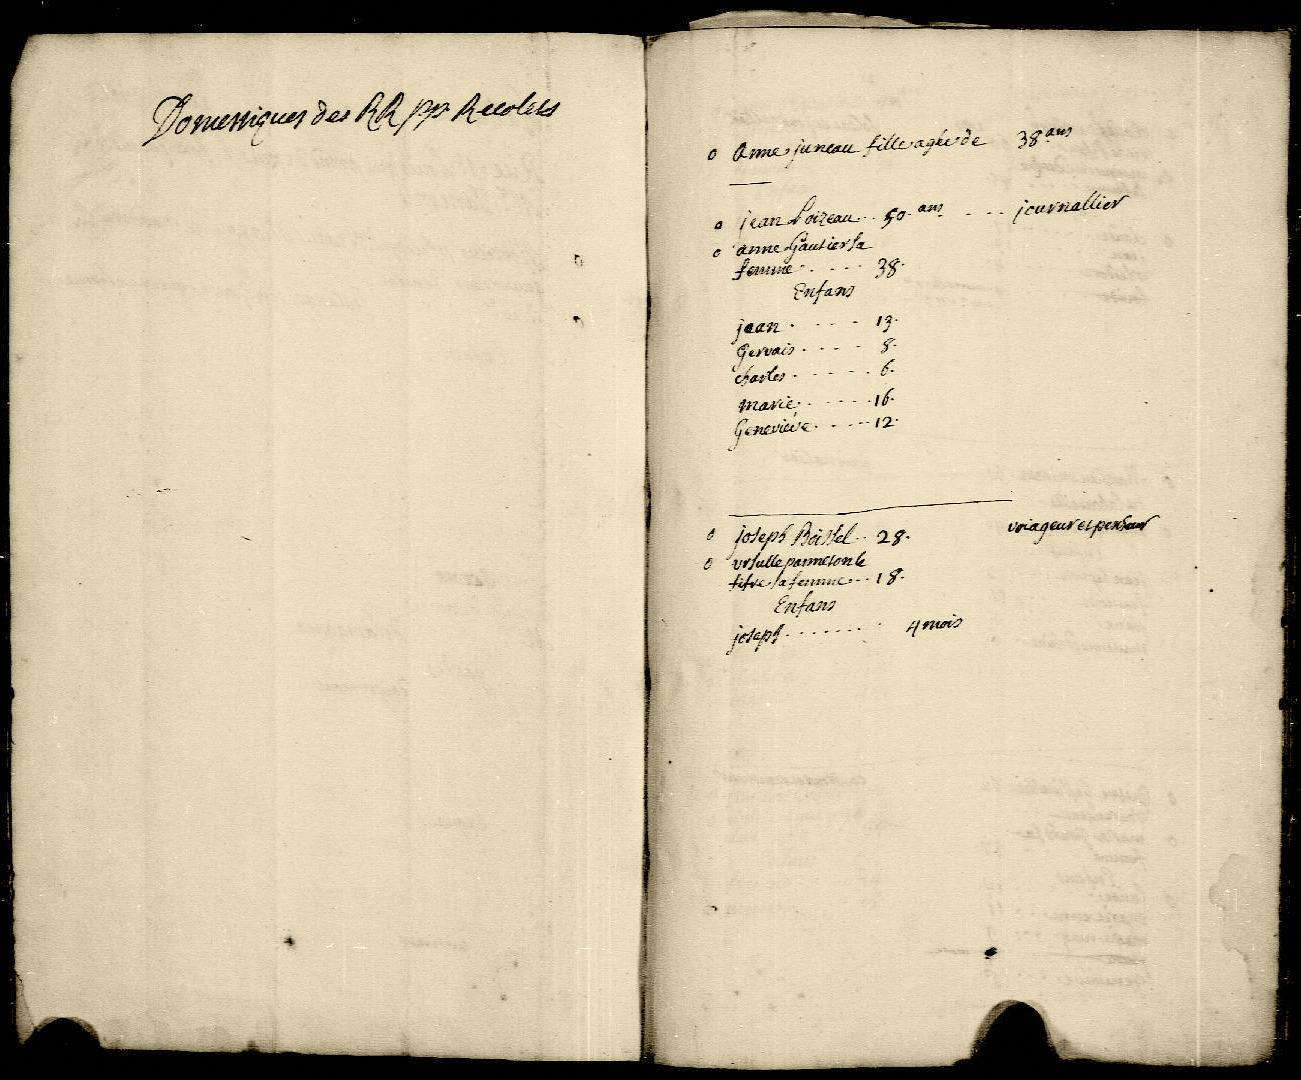 Domestiques des RR pp Recolets
o Anne juneau fille agée de 38 ans
o jean Loizeau 50 ans journallier
o anne Gautier sa
femme 38
Enfans
jean 13
Gervais 8
charles 6
marie 16
Geneviéve 12
o joseph Boissel 28 voiageur et
o ursulle panneton le
sa femme 18
Enfans
joseph 4 mois